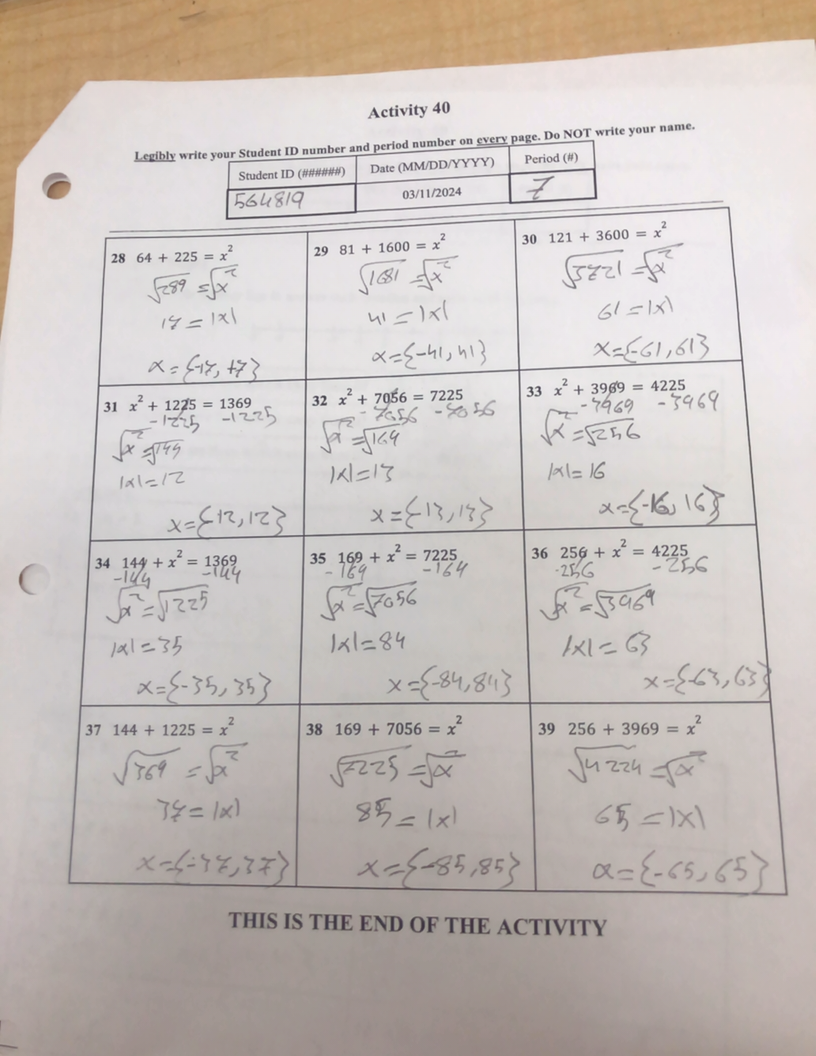 Activity 40
Legibly write your Student ID number and period number on every page. Do NOT write your name.
Student ID (######) Date (MM/DD/YYYY) Period (#)
564819 03/11/2024 7
28 64 + 225 = x²
√289 = √x²
17 = |x|
x = {-17, +7}
29 81 + 1600 = x²
√1681 = √x²
41 = |x|
x = {-41, 41}
30 121 + 3600 = x²
√3721 = √x²
61 = |x|
x = {-61, 61}
31 x² + 1225 = 1369
-1225 -1225
√x² = √144
|x| = 12
x = {12, 12}
32 x² + 7056 = 7225
-7056 -7056
√x² = √169
|x| = 13
x = {-13, 13}
33 x² + 3969 = 4225
-3969 -3969
√x² = √256
|x| = 16
x = {-16, 16}
34 144 + x² = 1369
-144 -144
√x² = √1225
|x| = 35
x = {-35, 35}
35 169 + x² = 7225
-169 -169
√x² = √7056
|x| = 84
x = {-84, 84}
36 256 + x² = 4225
-256 -256
√x² = √3969
|x| = 63
x = {-63, 63}
37 144 + 1225 = x²
√1369 = √x²
37 = |x|
x = {-37, 37}
38 169 + 7056 = x²
√7225 = √x²
85 = |x|
x = {-85, 85}
39 256 + 3969 = x²
√4224 = √x²
65 = |x|
x = {-65, 65}
THIS IS THE END OF THE ACTIVITY